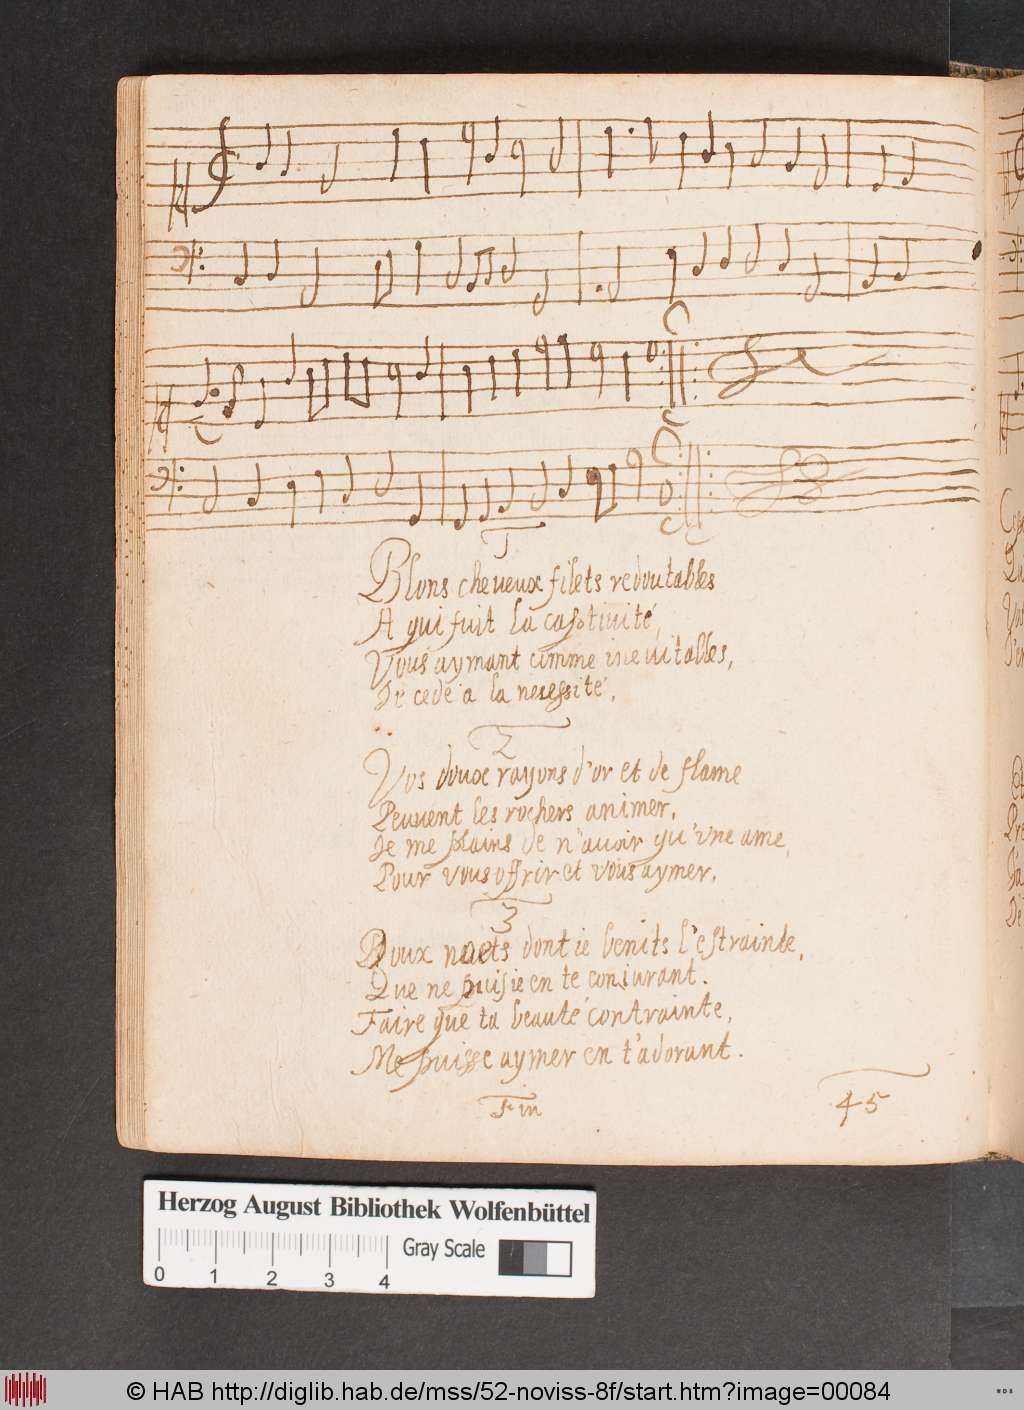 1
Blons cheueux filets redoutables
A qui fuit la captiuité,
Vous aymant comme ineuitables,
Je cede a la necessité.
2
Vos doux rayons d'or et de flame
Peuuent les rochers animer,
Je me plains de n'auoir qu'vne ame,
Pour vous offrir et vous aymer.
3
Doux nœts dont ie benits l'estrainte,
Que ne puis ie en te coniurant.
Faire que ta beauté contrainte,
Me puisse aymer en t'adorant.
Fin
45
Herzog August Bibliothek Wolfenbüttel
Gray Scale
0 1 2 3 4
© HAB http://diglib.hab.de/mss/52-noviss-8f/start.htm?image=00084